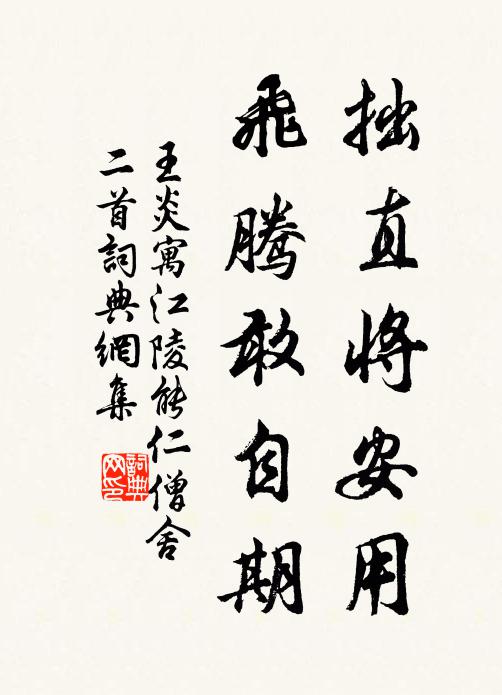 拙直将安用
飛騰敢自期
王炎寓江陵能仁僧舍
二首詞典網集
詞典
网印